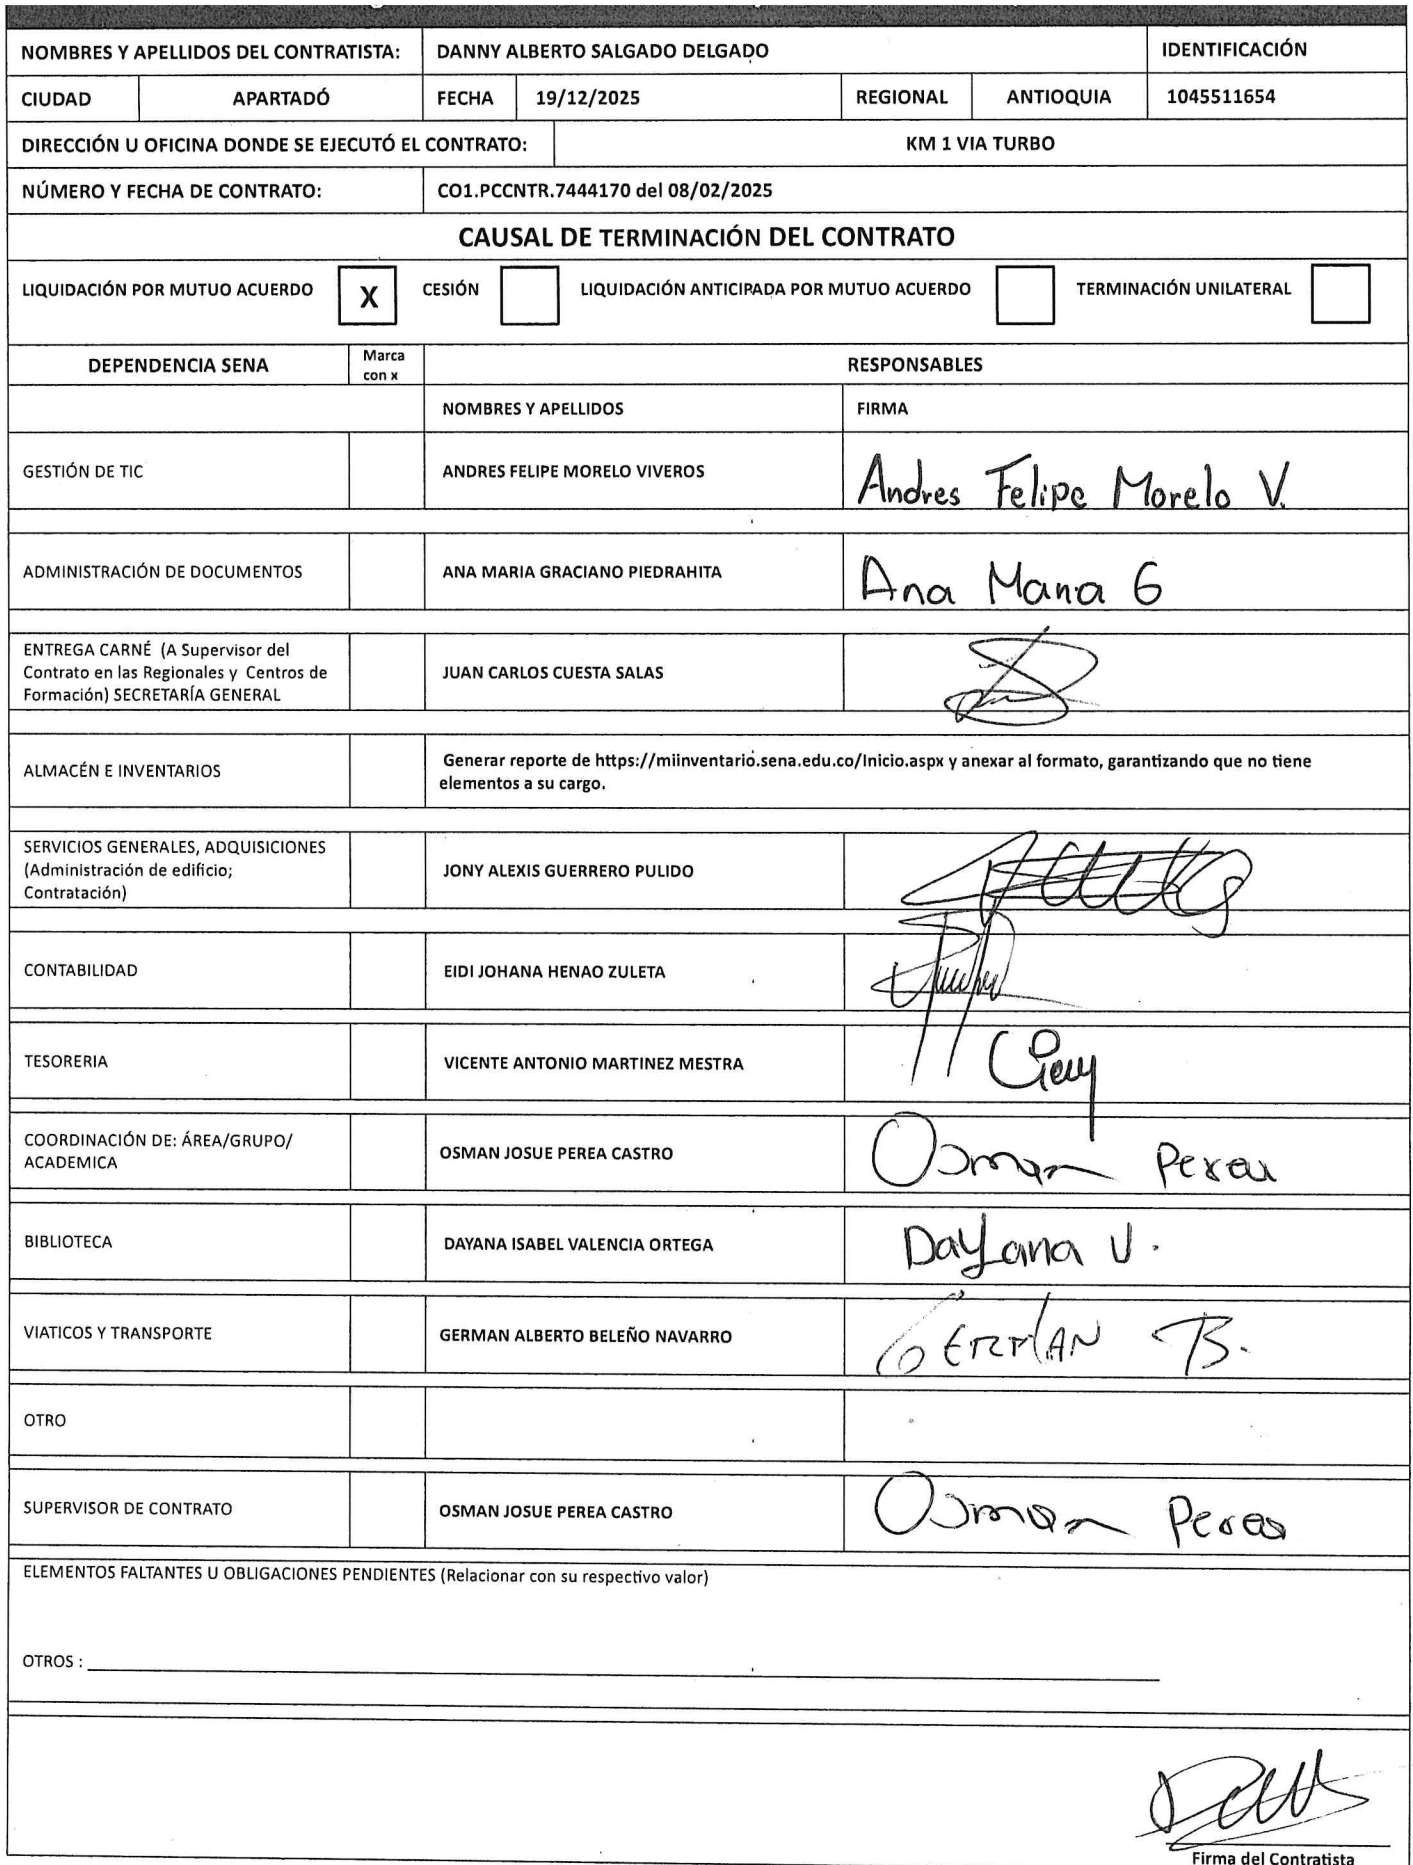 NOMBRES Y APELLIDOS DEL CONTRATISTA: DANNY ALBERTO SALGADO DELGADO IDENTIFICACIÓN
CIUDAD APARTADÓ FECHA 19/12/2025 REGIONAL ANTIOQUIA 1045511654
DIRECCIÓN U OFICINA DONDE SE EJECUTÓ EL CONTRATO: KM 1 VIA TURBO
NÚMERO Y FECHA DE CONTRATO: CO1.PCCNTR.7444170 del 08/02/2025
CAUSAL DE TERMINACIÓN DEL CONTRATO
LIQUIDACIÓN POR MUTUO ACUERDO X CESIÓN LIQUIDACIÓN ANTICIPADA POR MUTUO ACUERDO TERMINACIÓN UNILATERAL
DEPENDENCIA SENA Marca con x RESPONSABLES
NOMBRES Y APELLIDOS FIRMA
GESTIÓN DE TIC ANDRES FELIPE MORELO VIVEROS Andres Felipe Morelo V.
ADMINISTRACIÓN DE DOCUMENTOS ANA MARIA GRACIANO PIEDRAHITA Ana Maria G
ENTREGA CARNÉ (A Supervisor del
Contrato en las Regionales y Centros de
Formación) SECRETARÍA GENERAL
JUAN CARLOS CUESTA SALAS
ALMACÉN E INVENTARIOS
Generar reporte de https://miinventario.sena.edu.co/Inicio.aspx y anexar al formato, garantizando que no tiene
elementos a su cargo.
SERVICIOS GENERALES, ADQUISICIONES
(Administración de edificio;
Contratación)
JONY ALEXIS GUERRERO PULIDO
CONTABILIDAD EIDI JOHANA HENAO ZULETA
TESORERIA VICENTE ANTONIO MARTINEZ MESTRA
COORDINACIÓN DE: ÁREA/GRUPO/
ACADEMICA
OSMAN JOSUE PEREA CASTRO Osman Perea
BIBLIOTECA DAYANA ISABEL VALENCIA ORTEGA Dayana V.
VIATICOS Y TRANSPORTE GERMAN ALBERTO BELEÑO NAVARRO GERMAN B.
OTRO
SUPERVISOR DE CONTRATO OSMAN JOSUE PEREA CASTRO Osman Perea
ELEMENTOS FALTANTES U OBLIGACIONES PENDIENTES (Relacionar con su respectivo valor)
OTROS :
Firma del Contratista